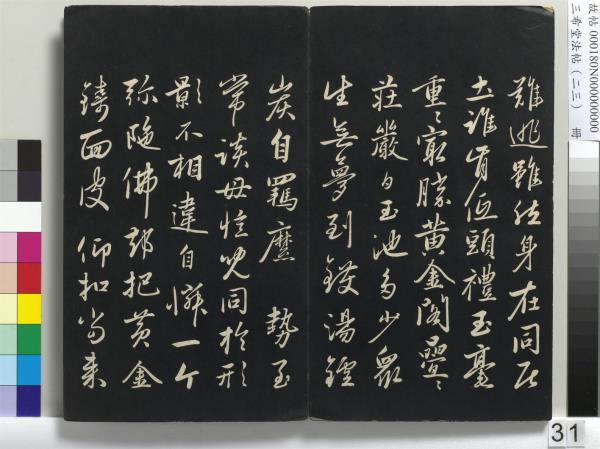 故帖 000180N000000000
三希堂法帖（二三） 冊
難逃雖然身在同居
土誰肯低頭禮玉毫
重〻最勝黃金閣疊〻
莊嚴白玉池多少眾
生無夢到鑊湯鑪
炭自羈縻 勢至
常談母憶兒同於形
影不相違自慚一个
弥陀佛却把黃金
鑄面皮 仰扣當来
31